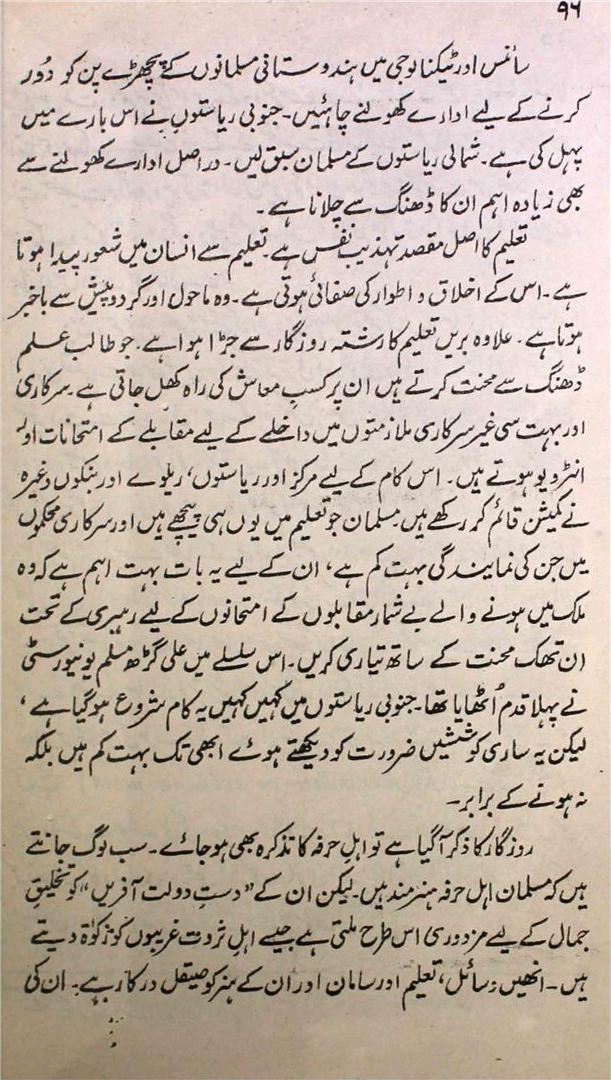 ۹۶
سائنس اور ٹیکنالوجی میں ہندوستانی مسلمانوں کے پچھڑے پن کو دُور
کرنے کے لیے ادارے کھولنے چاہئیں۔ جنوبی ریاستوں نے اس بارے میں
پہل کی ہے۔ شمالی ریاستوں کے مسلمان سبق لیں۔ دراصل ادارے کھولنے سے
بھی زیادہ اہم ان کا ڈھنگ سے چلانا ہے۔
تعلیم کا اصل مقصد تہذیبِ نفس ہے۔ تعلیم سے انسان میں شعور پیدا ہوتا
ہے۔ اس کے اخلاق و اطوار کی صفائی ہوتی ہے۔ وہ ماحول اور گردوپیش سے باخبر
ہوتا ہے۔ علاوہ بریں تعلیم کا رشتہ روزگار سے جڑا ہوا ہے۔ جو طالب علم
ڈھنگ سے محنت کرتے ہیں ان پر کسبِ معاش کی راہ کھل جاتی ہے۔ سرکاری
اور بہت سی غیر سرکاری ملازمتوں میں داخلے کے لیے مقابلے کے امتحانات اور
انٹرویو ہوتے ہیں۔ اس کام کے لیے مرکز اور ریاستوں، ریلوے اور بنکوں وغیرہ
نے کمیشن قائم کر رکھے ہیں۔ مسلمان جو تعلیم میں یوں ہی پیچھے ہیں اور سرکاری محکموں
میں جن کی نمایندگی بہت کم ہے، ان کے لیے یہ بات بہت اہم ہے کہ وہ
ملک میں ہونے والے بے شمار مقابلوں کے امتحانوں کے لیے رہبری کے تحت
ان تھک محنت کے ساتھ تیاری کریں۔ اس سلسلے میں علی گڑھ مسلم یونیورسٹی
نے پہلا قدم اُٹھایا تھا۔ جنوبی ریاستوں میں کہیں کہیں یہ کام شروع ہو گیا ہے،
لیکن یہ ساری کوششیں ضرورت کو دیکھتے ہوئے ابھی تک بہت کم ہیں بلکہ
نہ ہونے کے برابر۔
روزگار کا ذکر آ گیا ہے تو اہلِ حرفہ کا تذکرہ بھی ہو جائے۔ سب لوگ جانتے
ہیں کہ مسلمان اہل حرفہ ہنرمند ہیں۔ لیکن ان کے "دستِ دولت آفریں" کو تخلیقِ
جمال کے لیے مزدوری اس طرح ملتی ہے جیسے اہلِ ثروت غریبوں کو زکوٰۃ دیتے
ہیں۔ انھیں وسائل، تعلیم اور سامان اور ان کے ہنر کو صیقل درکار ہے۔ ان کی